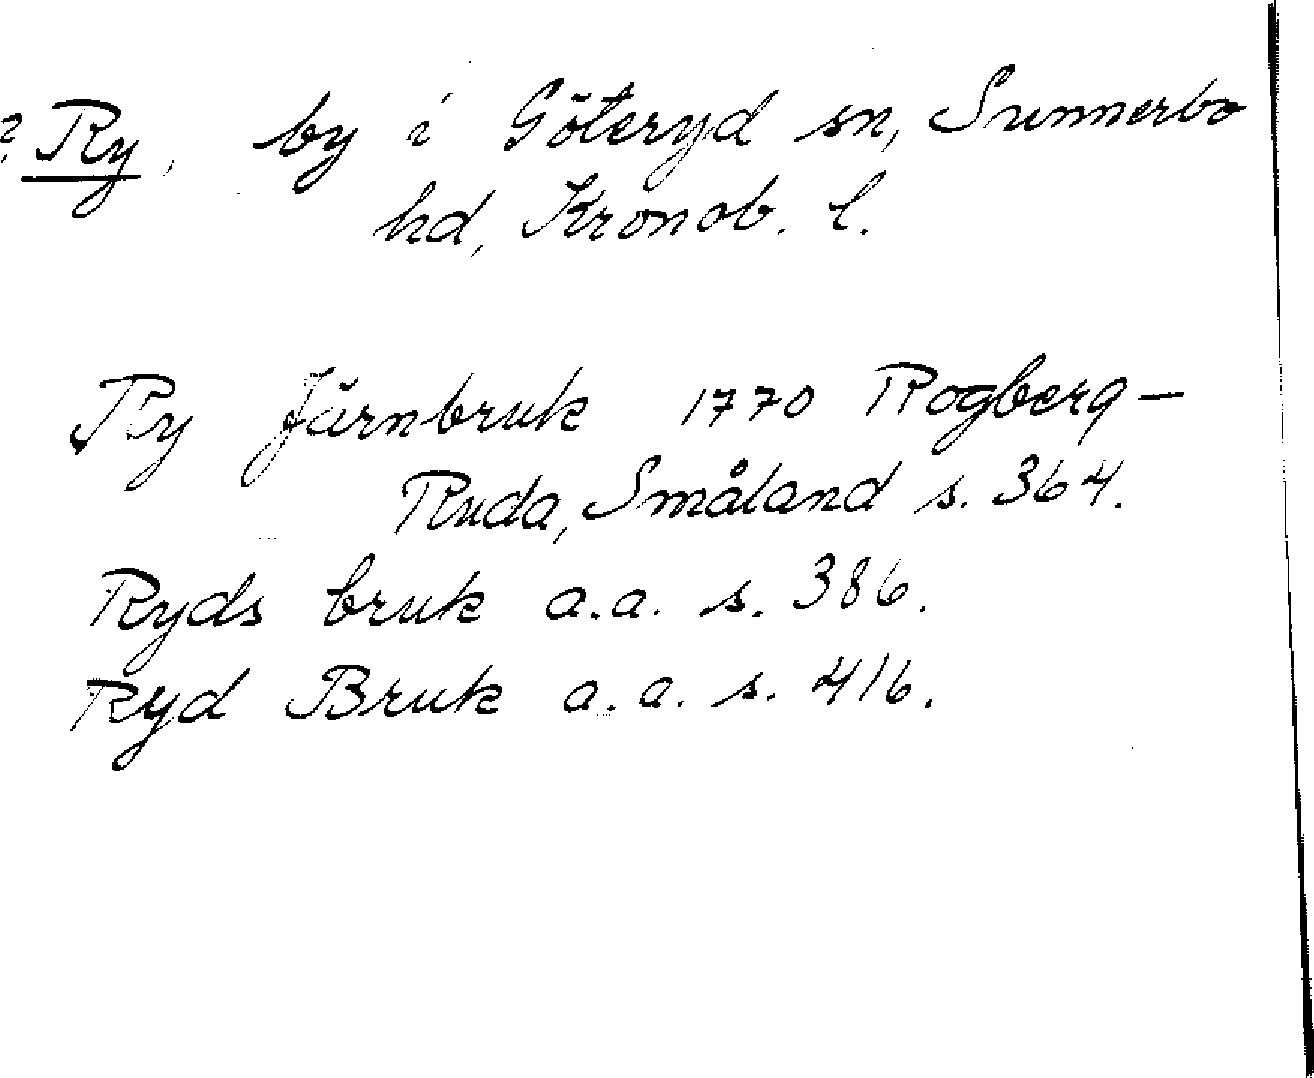 ? Ry, by i Göteryd sn, Sunnerbo
hd, Kronob. l.
Ry Järnbruk 1770 Rogberg-
Ruda, Småland s. 364.
Ryds bruk a.a. s. 386.
Ryd Bruk a.a. s. 416.